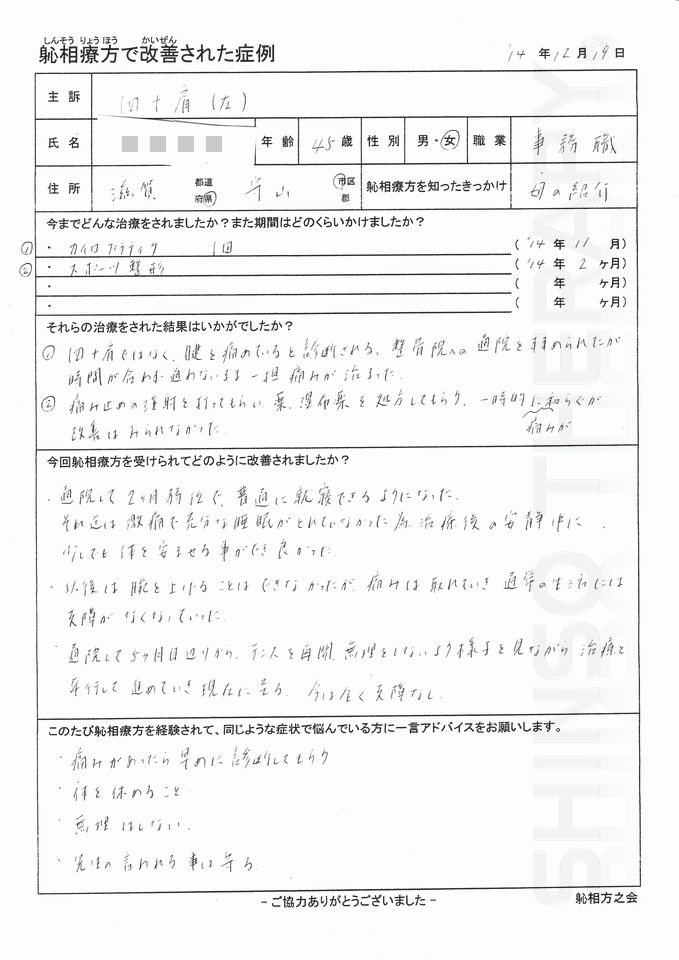 しんそう りょうほう かいぜん
躮相療方で改善された症例 '14 年 12 月 19 日
主訴 四十肩(左)
氏名 年齢 45 歳 性別 男・女 職業 事務職
住所 滋賀 都道府県 守山 市区郡 躮相療方を知ったきっかけ 母の紹介
今までどんな治療をされましたか？また期間はどのくらいかけましたか？
① ・カイロプラティク 1回 ( '14 年 11 月)
② ・スポーツ整形 ( '14 年 2 ヶ月)
・ ( 年 ヶ月)
・ ( 年 ヶ月)
それらの治療をされた結果はいかがでしたか？
① 四十肩ではなく、腱を痛めていると診断される。整骨院への通院を勧められたが
時間が合わず通わないまま一担痛みが治まった。
② 痛み止めの注射を打ってもらい、薬、湿布薬を処方してもらう、一時的に和らぐが
痛みが
改善はみられなかった。
今回躮相療方を受けられてどのように改善されましたか？
・通院して2ヶ月弱位で、普通に就寝できるようになった。
それ迄は激痛で充分な睡眠がとれていなかった為、治療後の安静中に、
少しでも体を安ませる事ができ良かった。
・以後は腕を上げることはできなかったが、痛みは取れていき通常の生活には
支障がなくなっていった。
・通院して5ヶ月目辺りから、テニスを再開、無理をしないよう様子を見ながら治療と
平行して進めていき現在に至る。今は全く支障なし。
このたび躮相療方を経験されて、同じような症状で悩んでいる方に一言アドバイスをお願いします。
・痛みがあったら早めに診断してもらう
・体を休めること
・無理はしない。
・先生の言われる事は守る
- ご協力ありがとうございました -
躮相方之会
SHINSO THERAPY